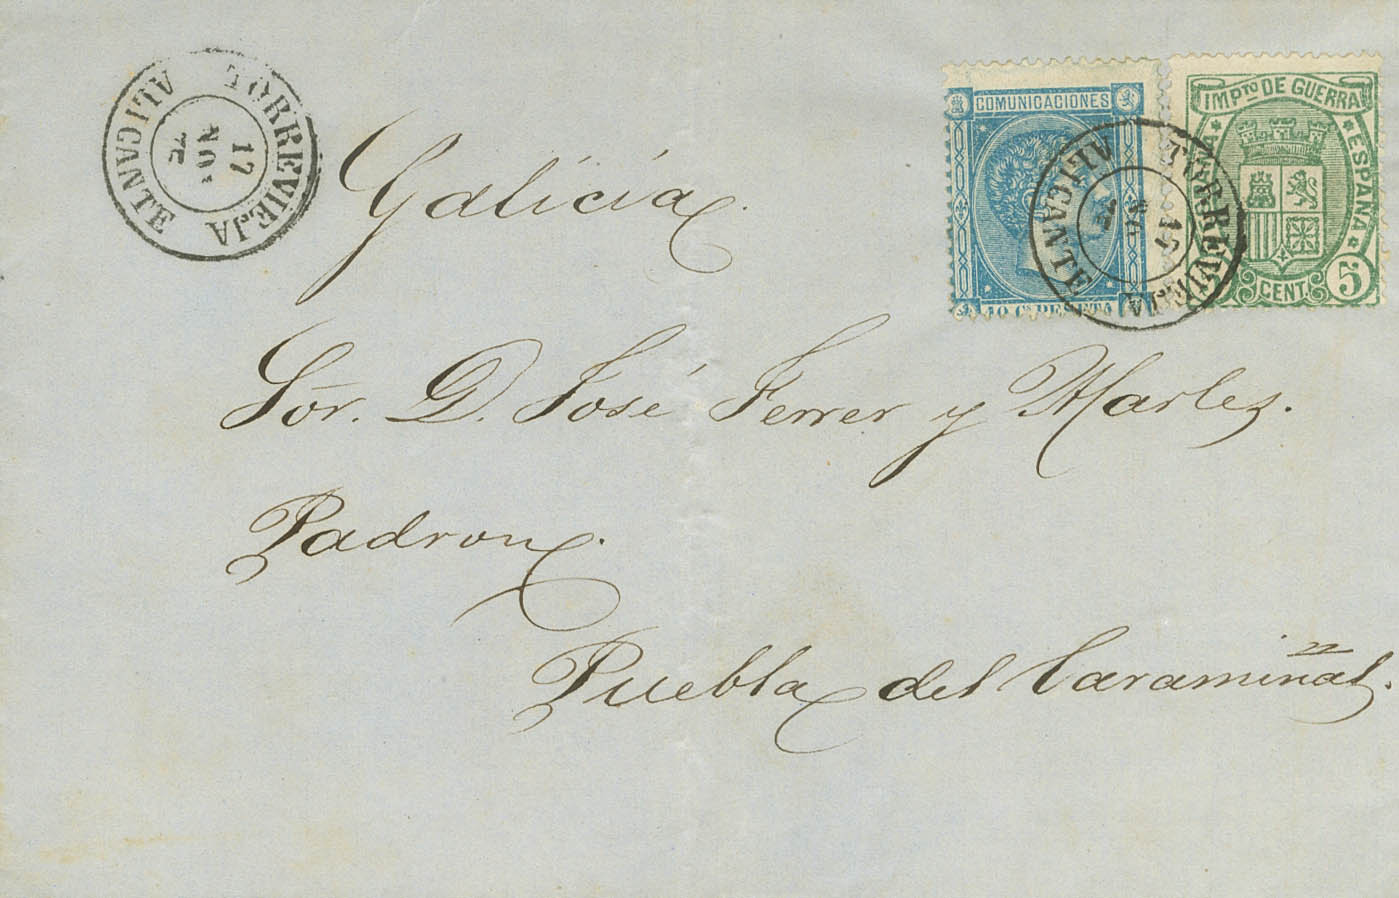 TORREVIEJA
ALICANTE
17
NOV
75
COMUNICACIONES
10 Cs PESETA
IMPTO DE GUERRA
ESPAÑA
5
CENT.
TORREVIEJA
ALICANTE
17
Galicia.
Sor. D. José Ferrer y Marles.
Padron.
Puebla del Caramiñal.